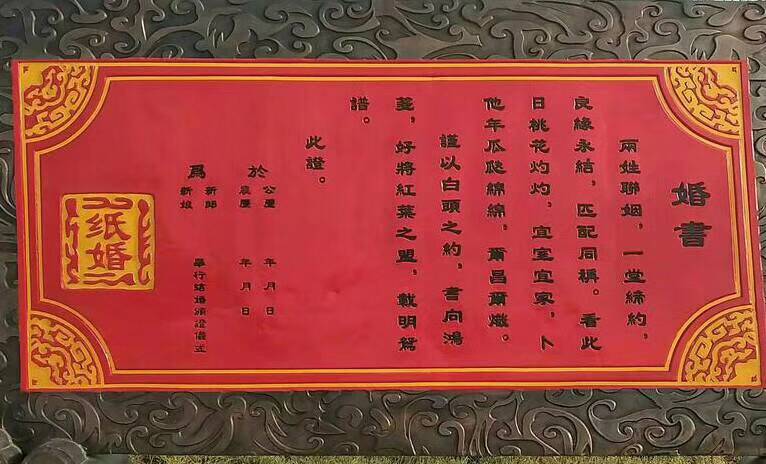 婚書
兩姓聯姻，一堂締約，
良緣永結，匹配同稱。看此
日桃花灼灼，宜室宜家，卜
他年瓜瓞綿綿，爾昌爾熾。
謹以白頭之約，書向鴻
箋，好將紅葉之盟，載明鴛
譜。
此證。
於
公曆 年 月 日
農曆 年 月 日
為
新郎
新娘
舉行結婚頒證儀式
纸婚